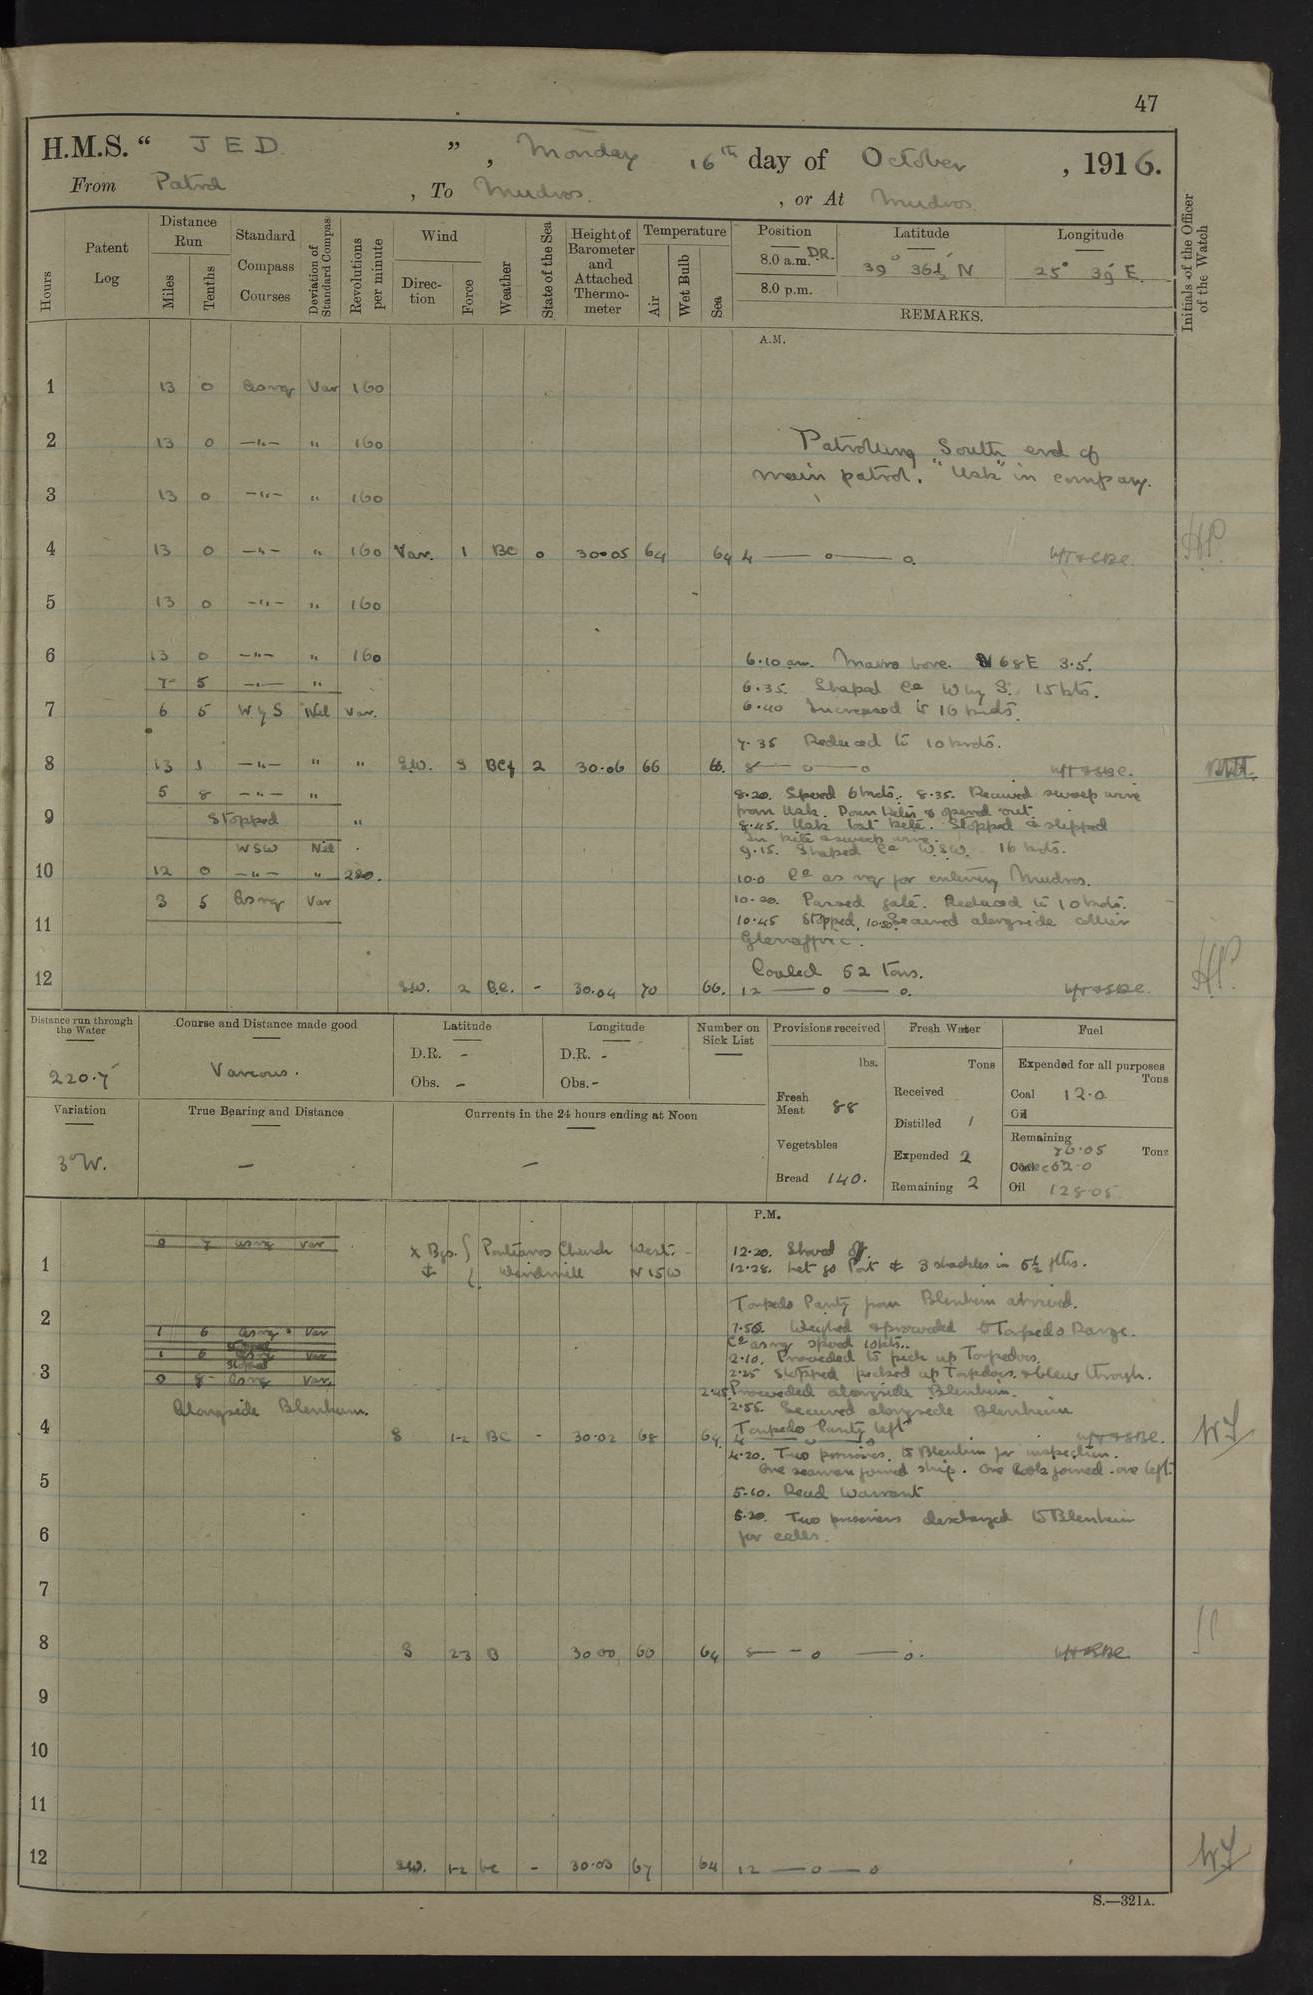 47
H.M.S. “ JED ” , Monday 16th day of October , 1916.
From Patrol , To Mudros. , or At Mudros.
Hours
Patent Log
Distance Run
Miles
Tenths
Standard Compass Courses
Deviation of Standard Compass
Revolutions per minute
Wind
Direction
Force
Weather
State of the Sea
Height of Barometer and Attached Thermometer
Temperature
Air
Wet Bulb
Sea
Position Latitude Longitude
8.0 a.m. D.R. 39° 36½' N 25° 39' E.
8.0 p.m.
REMARKS.
Initials of the Officer of the Watch
A.M.
1 13 0 As nq Var 160
2 13 0 —"— " 160
Patrolling South end of
main patrol. "Usk" in company.
3 13 0 —"— " 160
4 13 0 —"— " 160 Var. 1 BC 0 30.05 64 64 4 — o — o.
5 13 0 —"— " 160
6 13 0 —"— " 160
6.10 am. Mavro bore. N 68 E 3.5'.
7 5 —"— "
6.35. Shaped Co W by S. 15 kts.
7 6 5 W by S Nil Var.
6.40 Increased to 16 knots.
7.35 Reduced to 10 knots.
8 13 1 —"— " " SW. 3 BCq 2 30.06 66 66. 8 — o — o
5 8 —"— "
8.20. Speed 6 knots. 8.35. Received sweep wire
from Usk. Down kites & opened out.
9 Stopped "
8.45. Usk lost kite. Stopped & slipped
in kite & sweep wire.
WSW Nil
9.15. Shaped Co W.S.W. 16 knots.
10 12 0 —"— " 220.
10.0 Co as req for entering Mudros.
3 5 As nq Var
10.20. Passed gate. Reduced to 10 knots.
11
10.45 Stopped, 10.50. Secured alongside collier
Glenaffric.
Coaled 52 Tons.
12 SW. 2 B.C. - 30.04 70 66. 12 — o — o.
Distance run through the Water
220.7
Course and Distance made good
Various.
Latitude
D.R. -
Obs. -
Longitude
D.R. -
Obs. -
Number on Sick List
Provisions received
lbs.
Fresh Meat 88
Vegetables
Bread 140.
Fresh Water
Tons
Received
Distilled 1
Expended 2
Remaining 2
Fuel
Expended for all purposes
Tons
Coal 12.0
Oil
Remaining 76.05 Tons
Coal 52.0
Oil 128.05
Variation
3°W.
True Bearing and Distance
—
Currents in the 24 hours ending at Noon
—
P.M.
0 7 As nq Var
Bgs. Church West.
12.20. Shoved off.
1 Windmill N 15 W
12.28. Let go Port ⚓ 3 shackles in 5½ fths.
Torpedo Party from Blenheim arrived.
2
1.50. Weighed & proceeded to Torpedo Range.
1 6 As nq Var
Co as nq speed 10 kts.
Stopped
1 6 As nq Var
2.10. Proceeded to pick up Torpedoes.
Stopped
3
2.25 Stopped picked up Torpedoes & blew through.
0 8 As nq Var
2.45 Proceeded alongside Blenheim.
Alongside Blenheim.
2.55. Secured alongside Blenheim
Torpedo Party left
4 S 1-2 BC - 30.02 68 64. 4 — o — o
4.20. Two prisoners to Blenheim for inspection.
One seaman joined ship. One Cook joined. one left.
5
5.10. Read Warrant
5.20. Two prisoners discharged to Blenheim
6
for cells.
7
8 S 23 B 30.00 60 64 8 — - o — o.
9
10
11
12 SW. 1-2 bc - 30.03 67 64 12 — o — o
S.—321A.